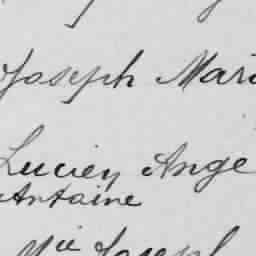 Joseph Mari
Lucien Ange
Antoine
Mie Joseph